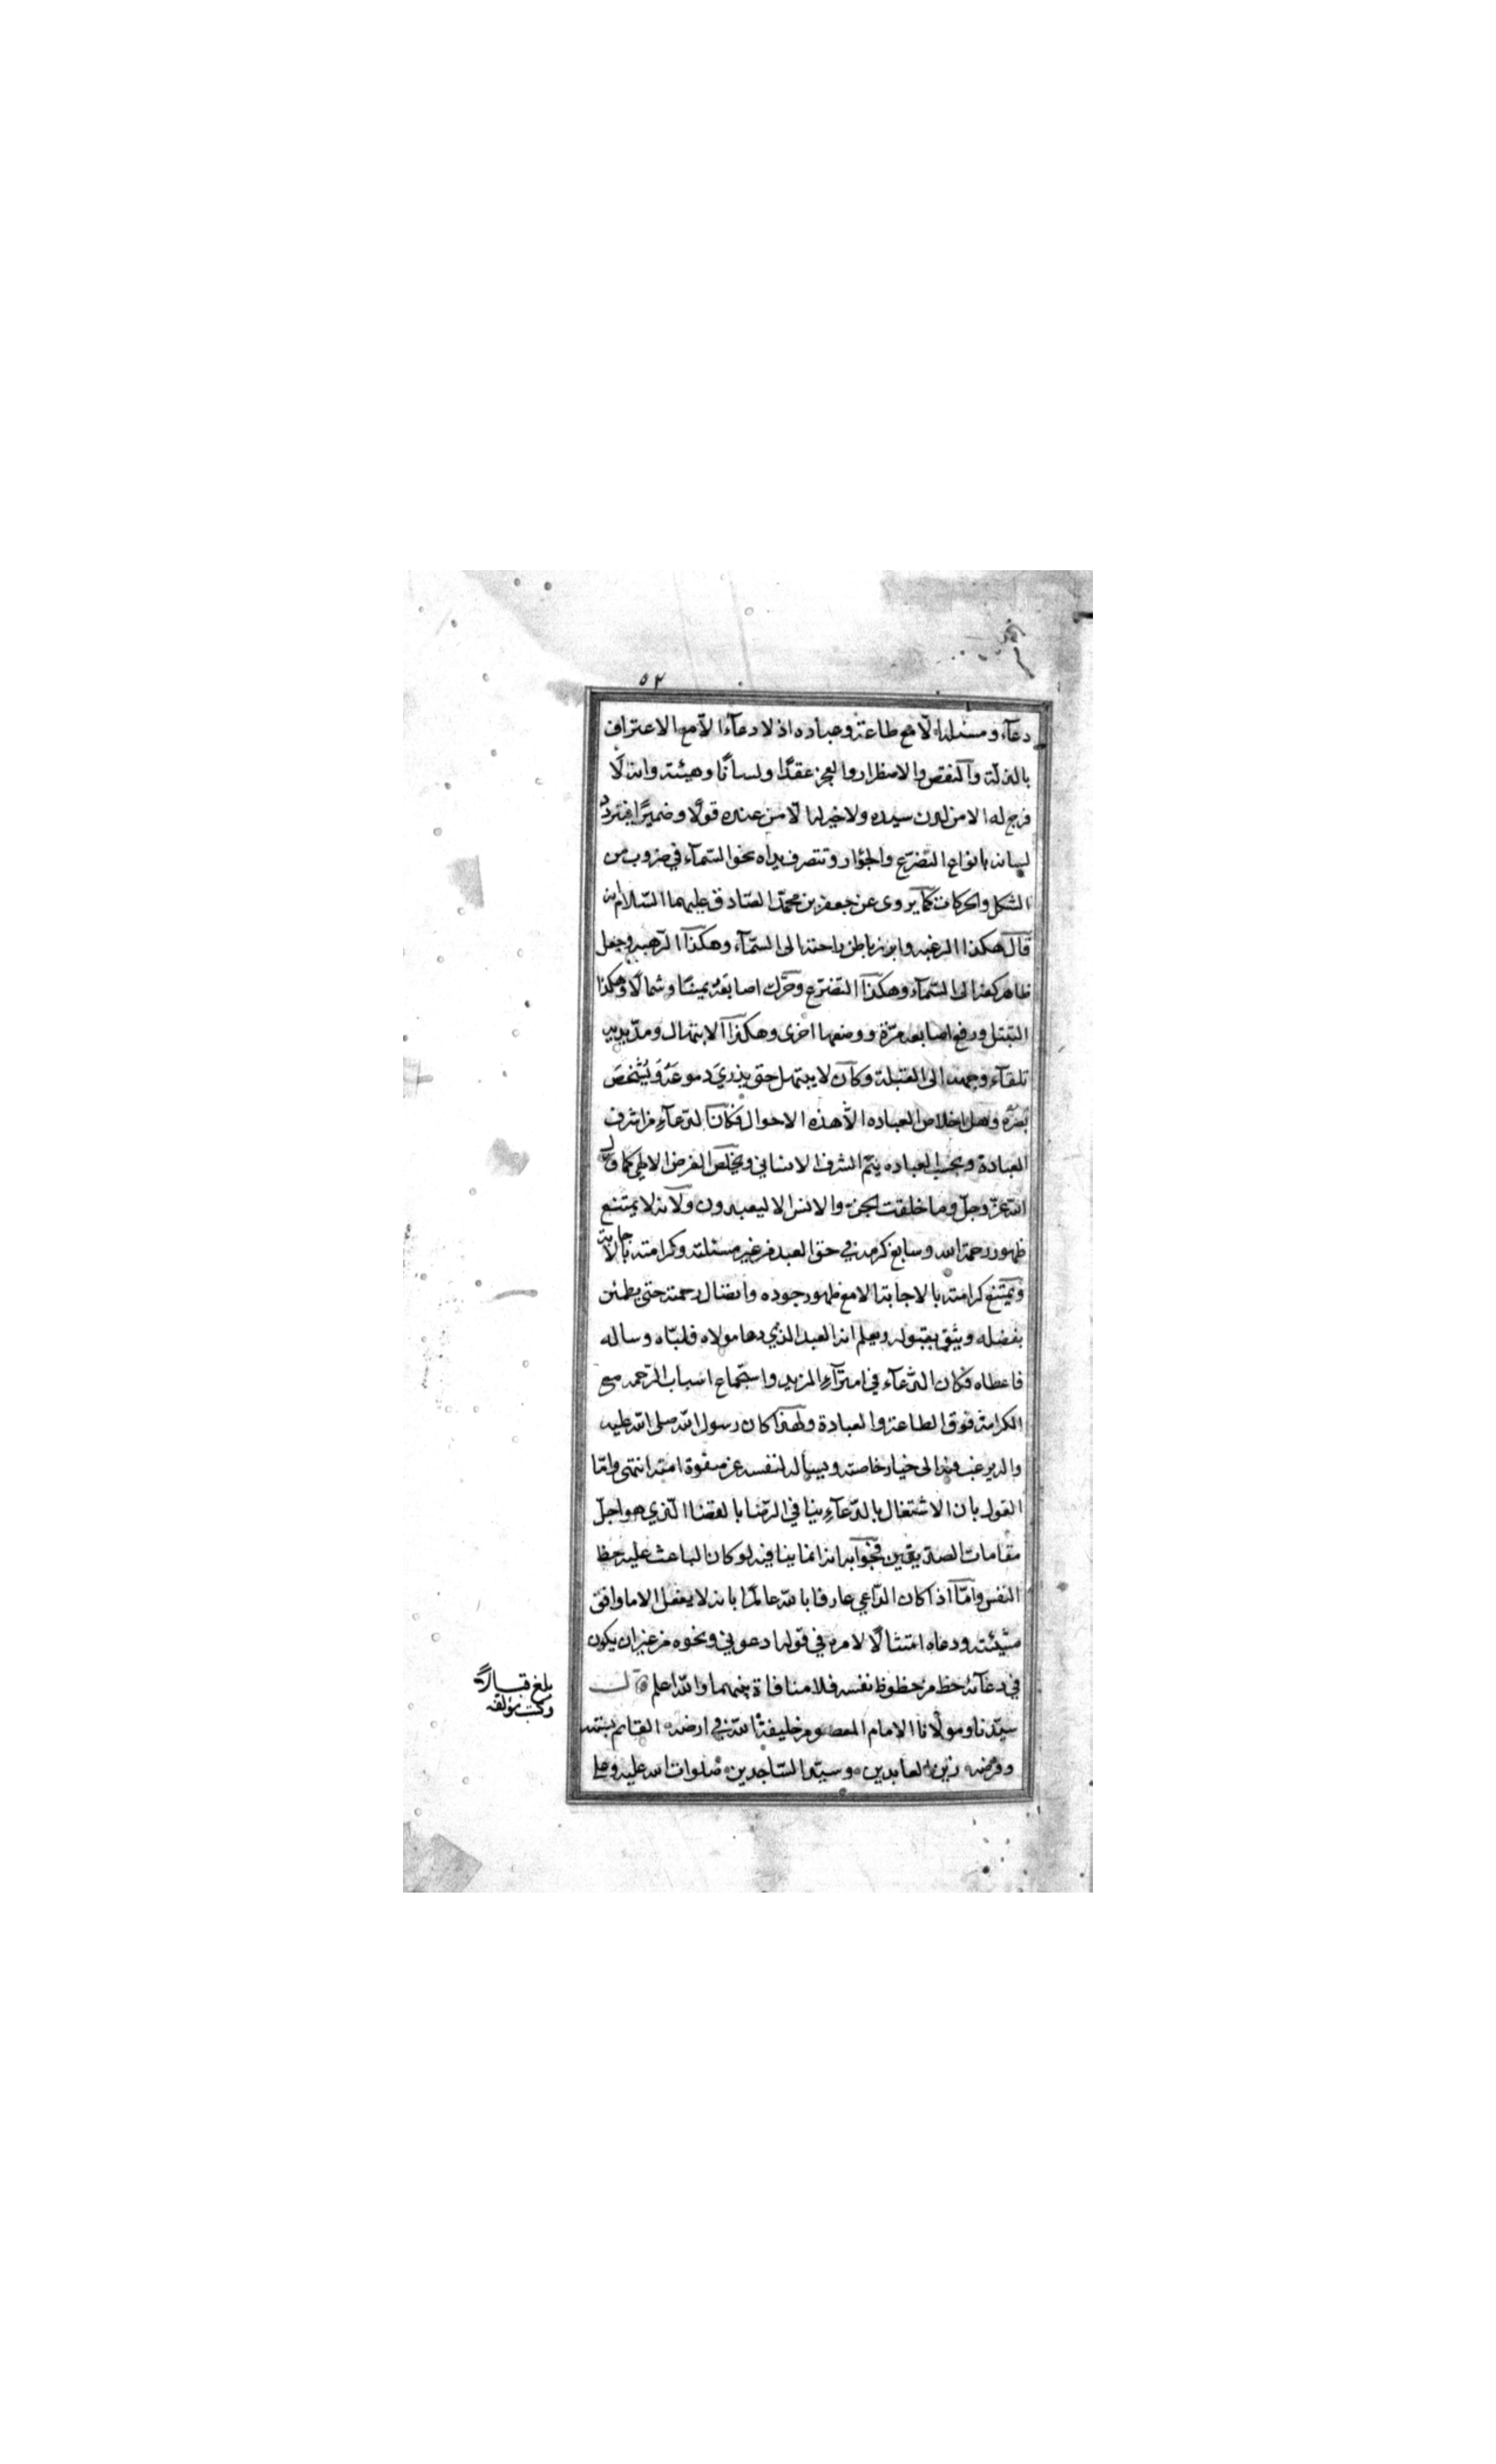 ٥٢
دعآء ومسئلة الّا مع طاعة وعباده اذ لا دعآء الّا مع الاعتراف
بالذلّة والنقص والاضطرار والعجز عقدًا ولسانًا وهيئته وانه لا
فرج له الا من لدن سيده ولا خير له الّا من عنده قولًا وضميرًا فيتردد
لسانه بانواع التضرّع والجؤار وتتصرف يداه نحو السّمآء في ضروب من
الشكل والحركات كما يروى عن جعفر بن محمّد الصّادق عليهما السّلام انه
قال هكذا الرغبه وابرز باطن راحته الى السّمآء وهكذا الرّهبه وجعل
ظاهر كفه الى السّمآء وهكذا التضرّع وحرّك اصابعَهُ يمينًا وشمالًا وهكذا
التبتل ورفع اصابعه مرّة ووضعها اخرى وهكذا الابتهال ومدّ يديه
تلقآء وجهه الى القبلة وكان لا يبتهل حتى يذريَ دموعَهُ ويُشْخصَ
بَصَرَه وهل اخلاص العباده الّا هذه الاحوال فكان الدّعآء من اشرف
العبادة وبحسب العباده يتمّ الشرف الانساني ويخلص الغرض الالهي كما قال
الله عزّ وجلّ وما خلقت الجنّ والانس الا ليعبدون ولانه لا يمتنع
ظهور رحمة الله وسابغ كرمه في حق العبد من غير مسئلته وكرامته بالاجابة
ويمتنع كرامته بالاجابة الا مع ظهور جوده وافضال رحمته حتى يطمئن
بفضله ويثق بقبوله ويعلم انه العبد الذي دعا مولاه فلبّاه وساله
فاعطاه فكان الدّعآء في امترآء المزيد واستجماع اسباب الرّحمه مع
الكرامة فوق الطاعة والعبادة ولهذا كان رسول الله صلى الله عليه
واله يرغب فيه الى خيار خاصته ويساله لنفسه عن صفوة امته انتهى وامّا
القول بان الاشتغال بالدّعآءِ ينافي الرّضا بالقضا الّذي هو اجلّ
مقامات الصدّيقين فجوابه انه انما ينافيه لو كان الباعث عليه حظ
النفس وامّا اذا كان الدّاعي عارفا بالله عالمًا بانه لا يفعل الا ما وافق
مشيئته ودعاه امتثالًا لامره في قوله ادعوني ونحوه من غير ان يكون
في دعآئه حظ من حظوظ نفسه فلا منافاة بينهما والله اعلم قال
سيّدنا ومولانا الامام المعصوم خليفة الله في ارضه القائم بسنته
وفرضه زين العابدين وسيّد السّاجدين صلوات الله عليه وعلى
بلغ قبالا
وكتب مؤلفه